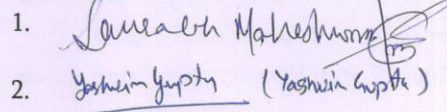 1. Saurabh Maheshwari
2. Yashwin Gupta (Yashwin Gupta)